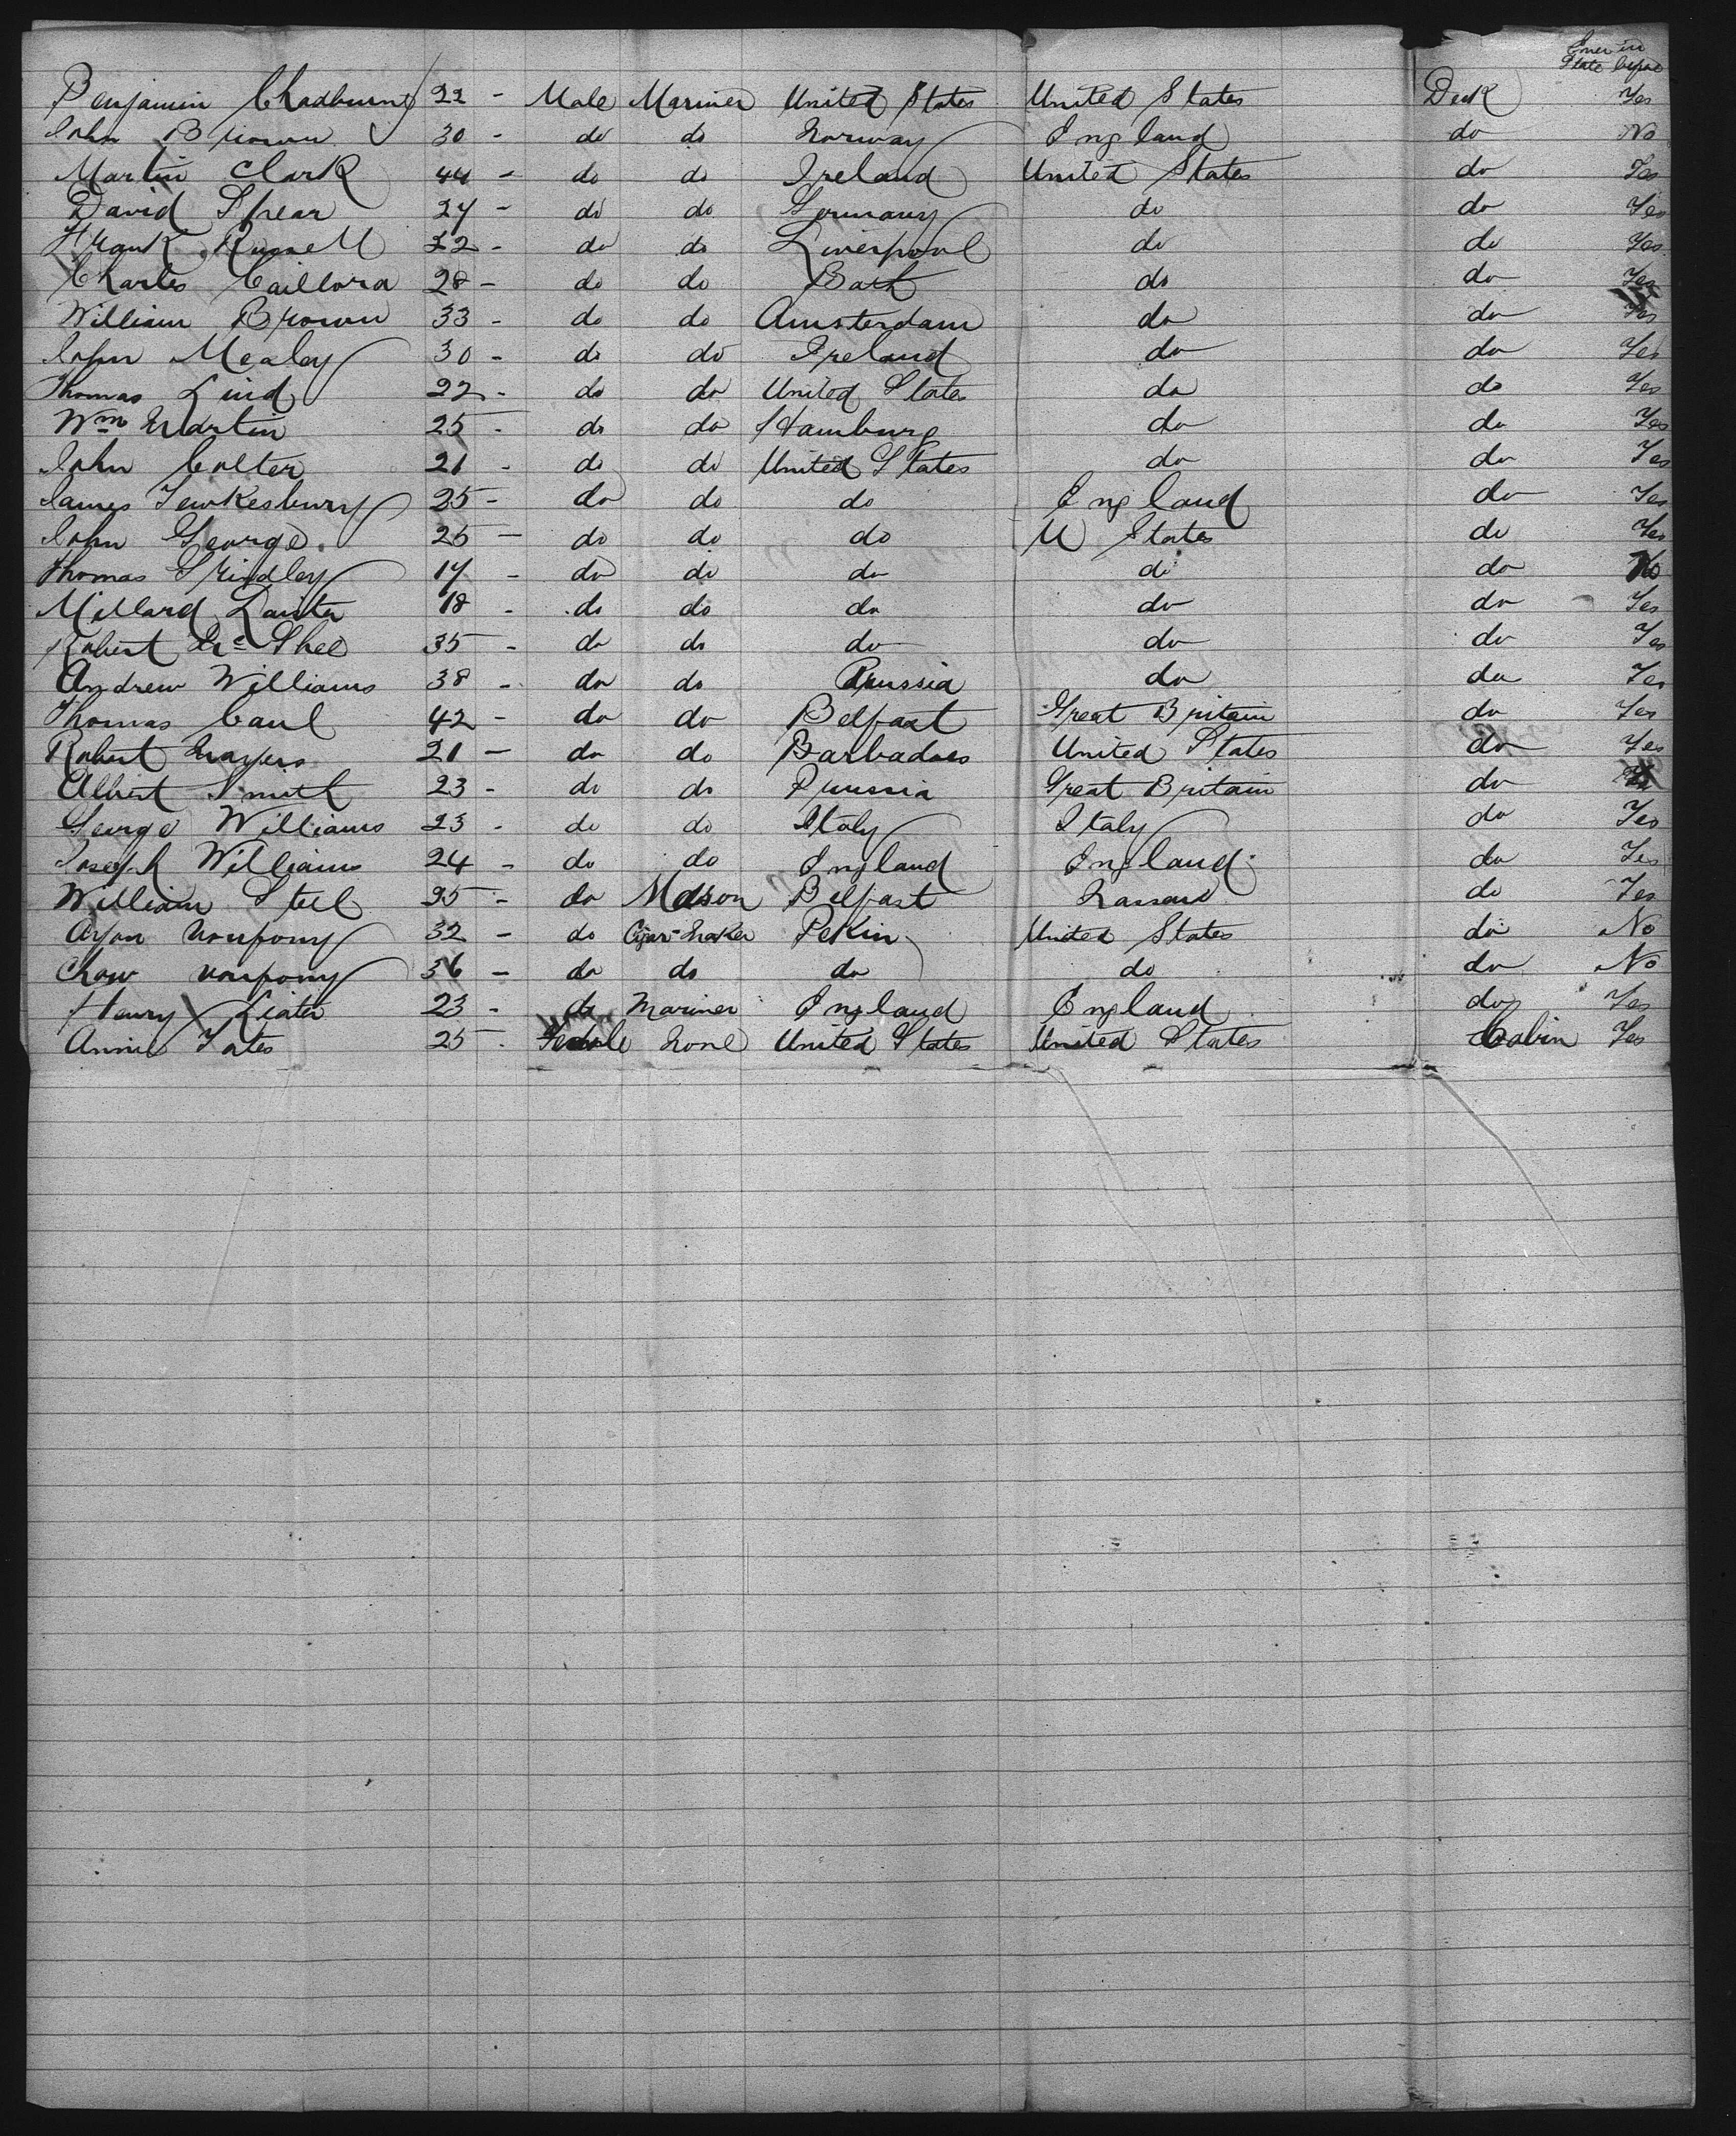 Ever in
State before
Benjamin Chadburne 22 - Male Mariner United States United States Deck Yes
John Brown 30 - do do Norway England do No
Martin Clark 44 - do do Ireland United States do Yes
David Spear 24 - do do Germany do do Yes
Frank Russell 32 - do do Liverpool do do Yes
Charles 28 - do do Bath do do Yes
William Brown 33 - do do Amsterdam do do Yes
John Mealey 30 - do do Ireland do do Yes
Thomas Lind 22 - do do United States do do Yes
Wm Martin 25 - do do Hamburg do do Yes
John Colter 21 - do do United States do do Yes
James Tewkesbury 25 - do do do England do Yes
John George 25 - do do do U States do Yes
Thomas Grindley 17 - do do do do do No
Millard 18 - do do do do do Yes
Robert Mc Shee 35 - do do do do do Yes
Andrew Williams 38 - do do Prussia do do Yes
Thomas Caul 42 - do do Belfast Great Britain do Yes
Robert Mayers 21 - do do Barbadoes United States do Yes
Albert Smith 23 - do do Prussia Great Britain do
George Williams 23 - do do Italy Italy do Yes
Joseph Williams 24 - do do England England do Yes
William Steel 25 - do Mason Belfast Nassau do Yes
32 - do Cigar Maker Pekin United States do No
Chow 36 - do do do do do No
Henry 23 - do Mariner England England do Yes
Annie Yates 25 - Female None United States United States Cabin Yes